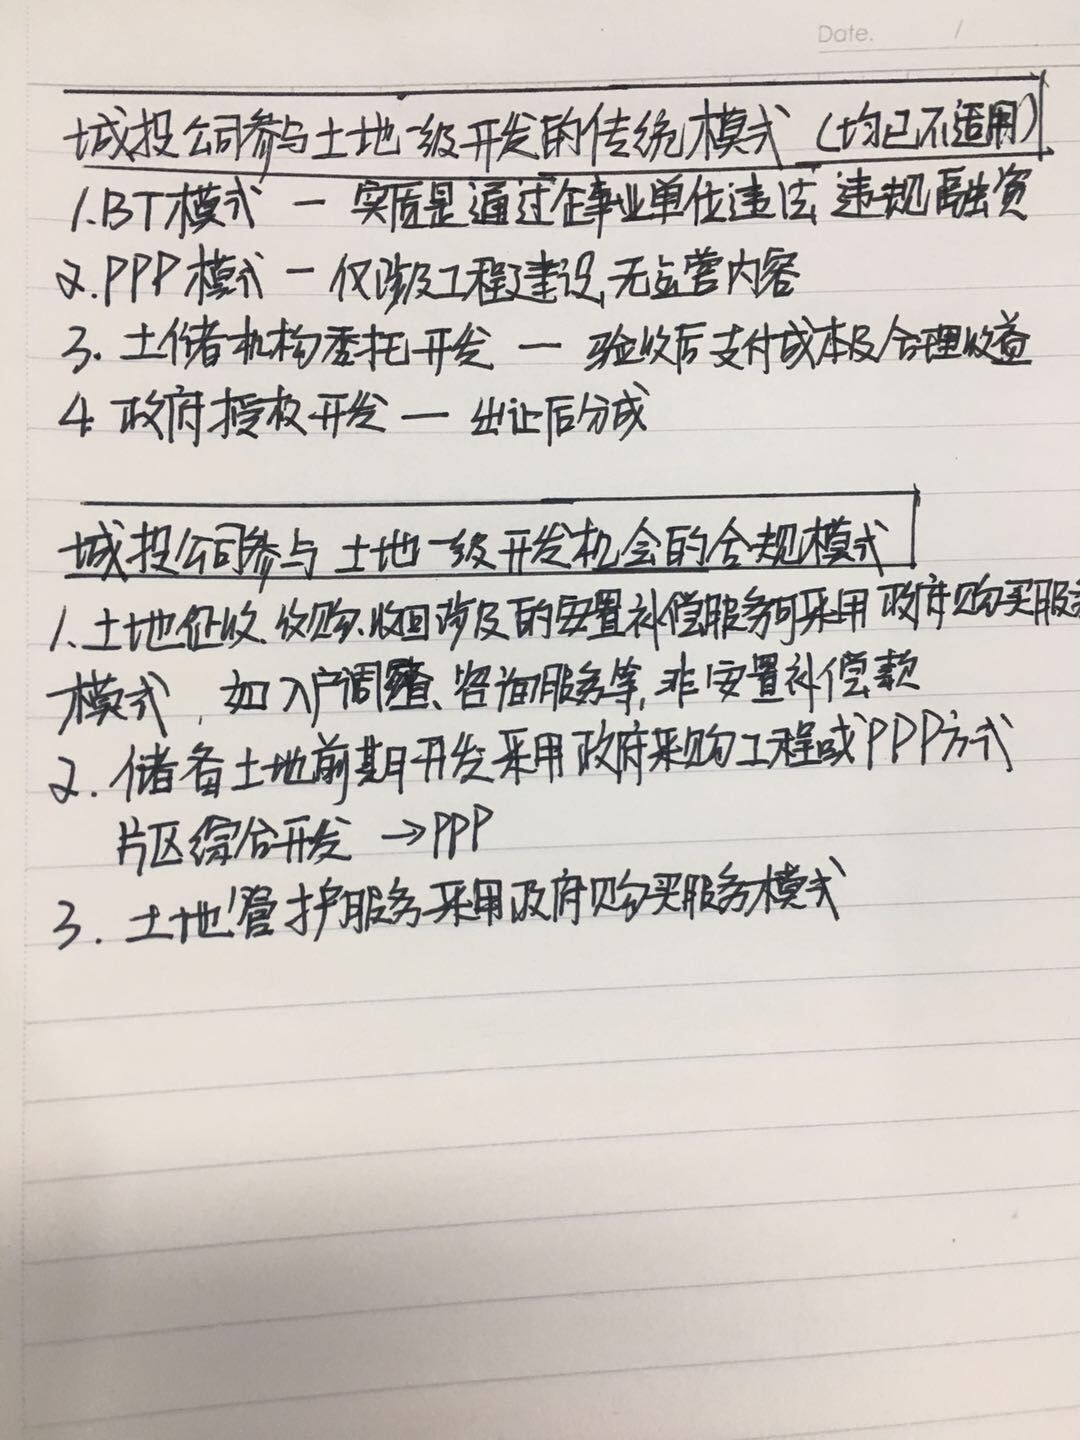 Date. /
城投公司参与土地一级开发的传统模式（均已不适用）
1.BT模式 — 实质是通过企事业单位违法、违规融资
2.PPP模式 — 仅涉及工程建设,无运营内容
3. 土储机构委托开发 — 验收后支付成本及合理收益
4 政府授权开发 — 出让后分成
城投公司参与土地一级开发机会的合规模式
1.土地征收、收购、收回涉及的安置补偿服务可采用政府购买服务
模式，如入户调查、咨询服务等,非安置补偿款
2. 储备土地前期开发采用政府采购工程或PPP方式
片区综合开发 →PPP
3. 土地管护服务采用政府购买服务模式